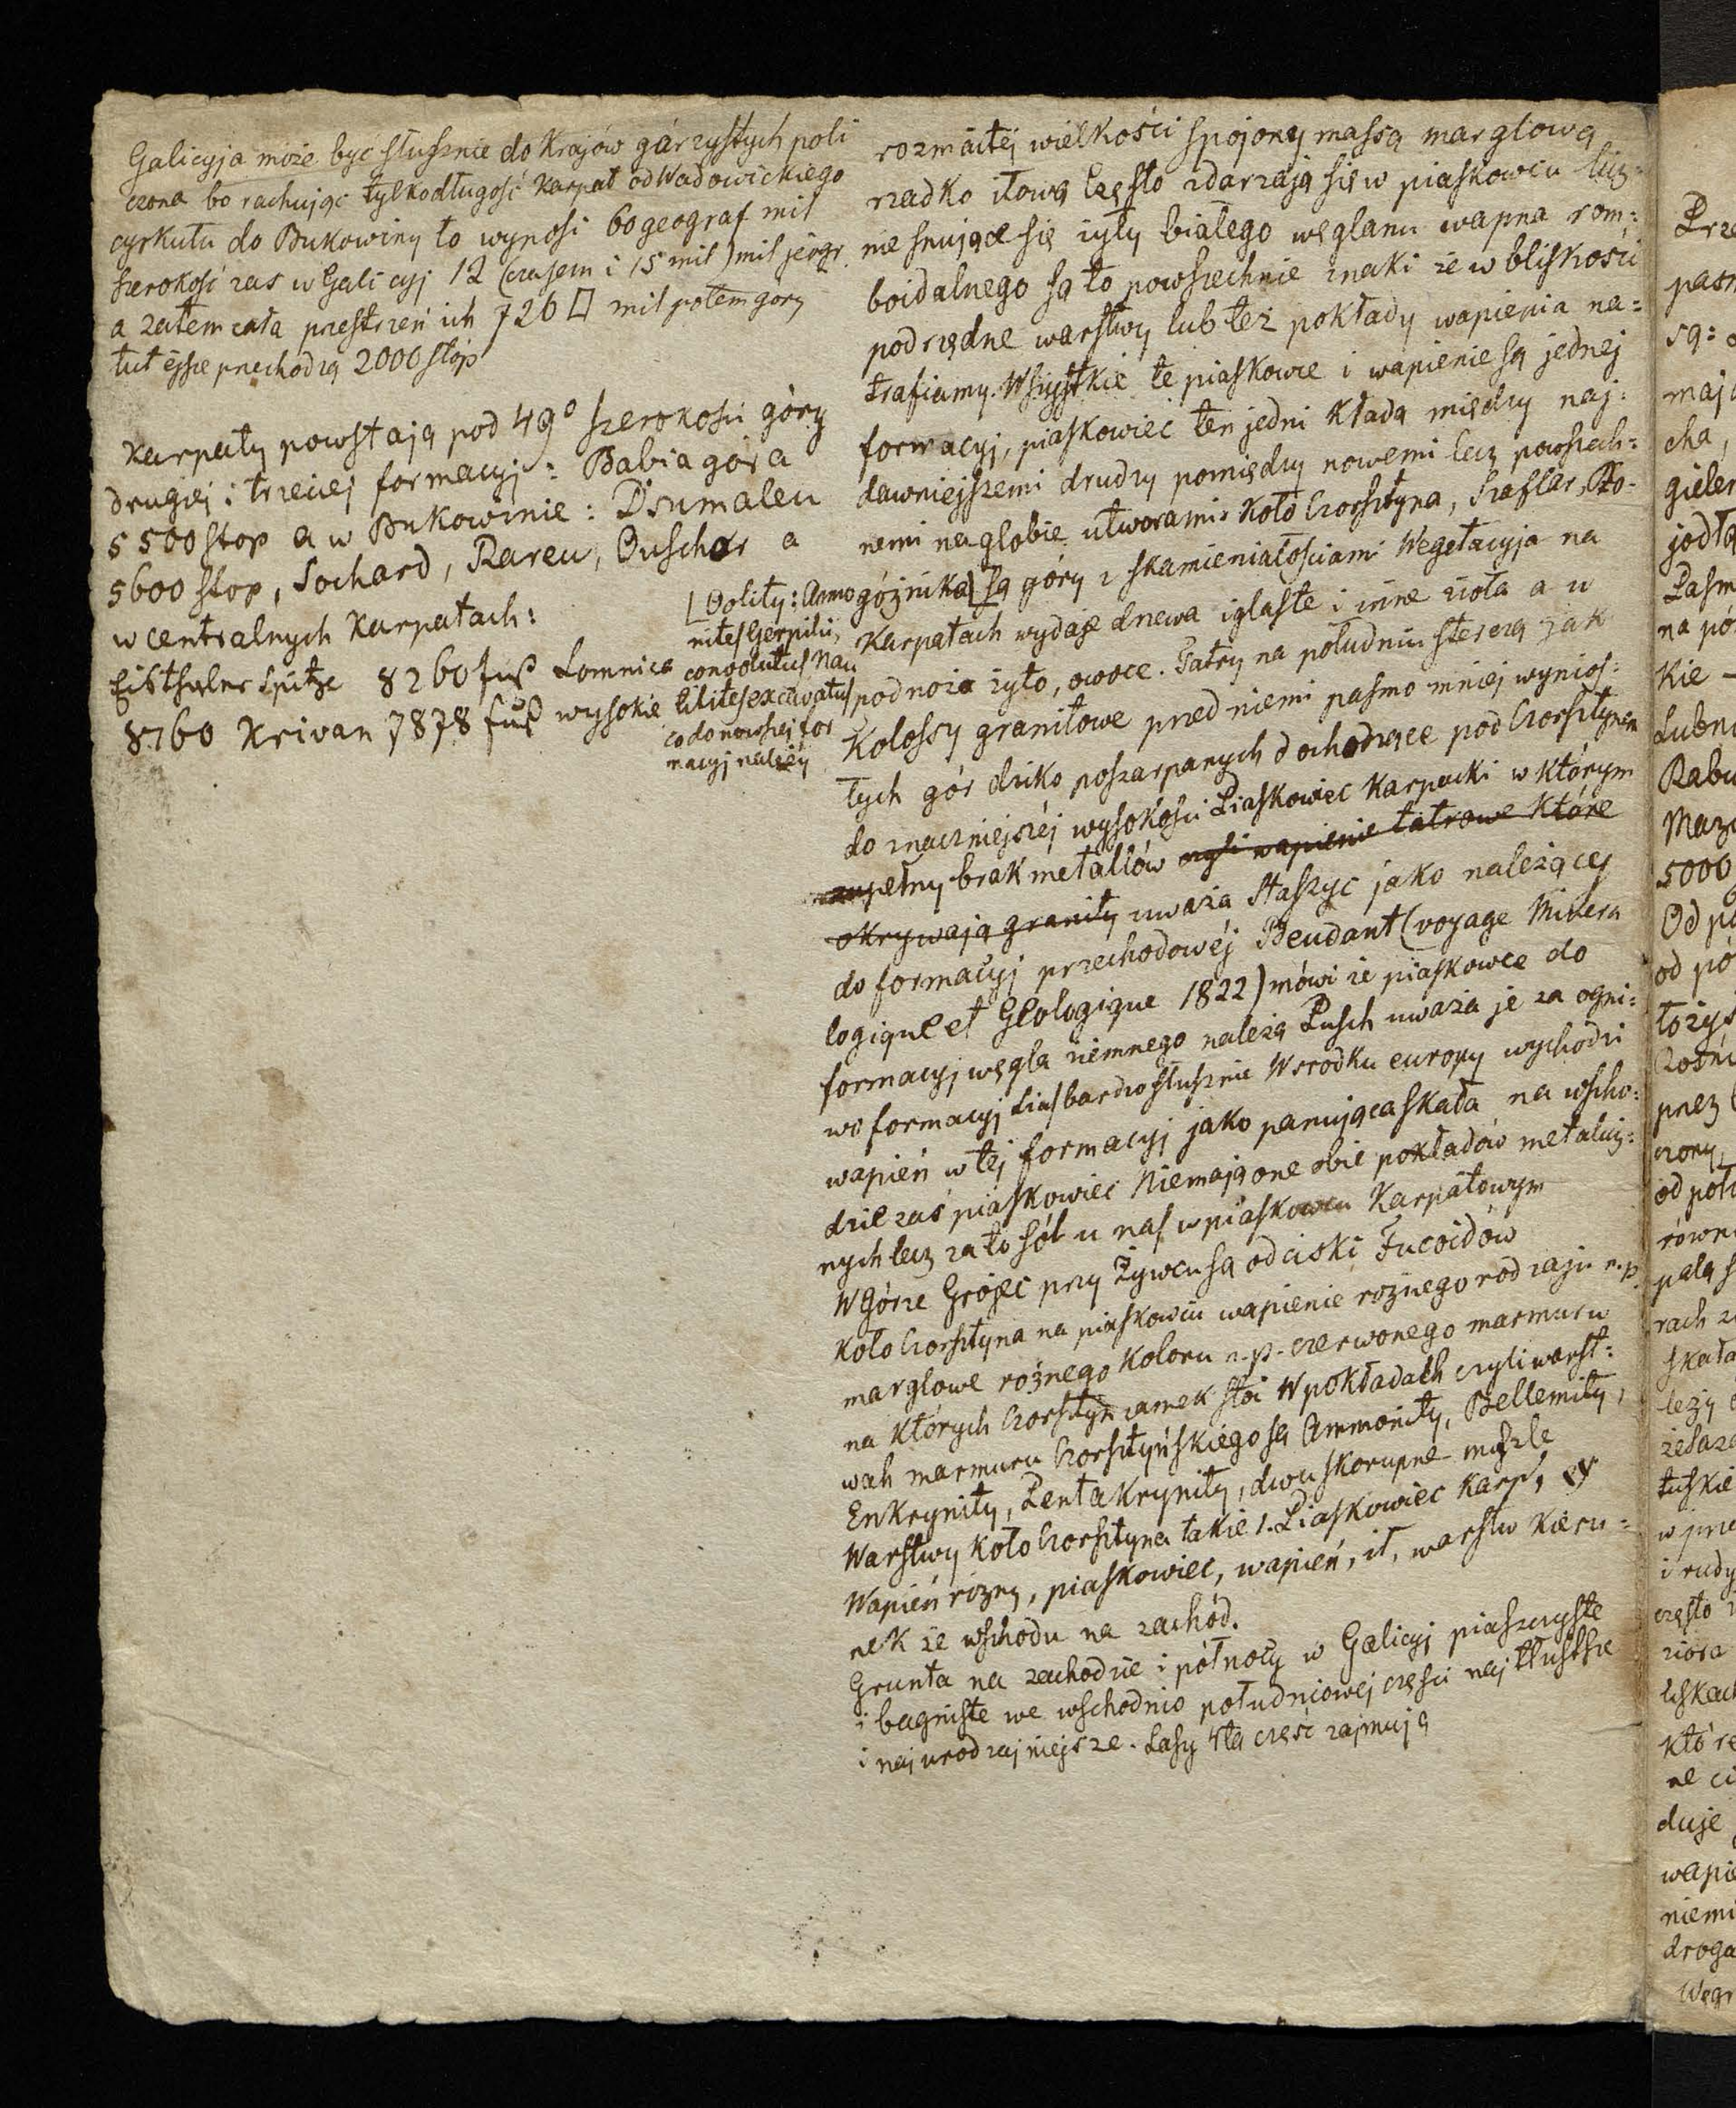 Galicyja może być słusznie do Krajów górzystych poli
czona bo rachując tylko długość Karpat od Wadowickiego
cyrkułu do Bukowiny to wynosi 60 geograf mil
szerokość zas w Galicyj 12 (czasem i 15 mil) mil jeogr.
a zatem cała przestrzeń ich 726 □ mil potem góry
tutéjsze przechodzą 2000 stóp
Karpaty powstają pod 49° szerokości góry
drugiéj i trzeciej formacyj: Babia góra
5500 stop a w Bukowinie: Dsumaleu
5600 stop, Suchard, Rareu, Ouschor a
w centralnych Karpatach:
Eisthaler Spitze 8260 fuß Lomnica
8760 Krivan 7878 fuß wysokie
[Oolity: Amo
nites Gerpilii,
convolutus Nau
tilites excavatus
co do nowszej for
macyj należy
rozmaitéj wielkości spojony massą marglową
rzadko iłową Często zdarzają się w piaskowcu licz=
nie snujące się żyły białego węglanu wapna rom=
boidalnego są to powszechnie znaki że w bliskości
podrzędne warstwy lub też pokłady wapienia na=
trafiamy. Wszystkie te piaskowce i wapienie są jednej
formacyj, piaskowiec ten jedni kładą między naj=
dawniejszemi drudzy pomiędzy nowemi lecz powszech=
nemi na globie utworami. Koło Czorsztyna, Szaflar, Ro-
góźnika] są góry z skamieniałościami Wegetacyja na
Karpatach wydaje drzewa iglaste i inne zioła a u
podnoża żyto, owoce. Tatry na południu sterczą jak
Kolossy granitowe przed niemi pasmo mniéj wynios=
łych gór dziko poszarpanych dochodzące pod Czorsztynem
do znaczniejszéj wysokości Piaskowiec Karpacki w którym
zupełny brak metallów czyli wapienie tatrowe które
okrywają granity uważa Staszyc jako należący
do formacyj przechodowéj Beudant (voyage Minera
logique et Geologique 1822) mówi że piaskowce do
formacyj węgla ziemnego należą Pusch uważa je za ogni=
wo formacyj Lias bardzo słusznie W srodku europy wychodzi
wapień w téj formacyj jako panująca skała na wscho=
dzie zaś piaskowiec Niemają one obie pokładów metalicz=
nych lecz za to sól u nas w piaskowcu Karpatowym
W Górze Grojec przy Żywcu są odciski Fucoidów
Koło Czorsztyna na piaskowcu wapienie roznego rodzaju n.p.
marglowe rożnego koloru n.p. czerwonego marmuru
na których Czorsztyn zamek stoi W pokładach czyli warst=
wah marmuru Czorsztyńskiego są Ammonity, Bellemity,
Enkrynity, Pentakrynity, dwuskorupne muszle
Warstwy koło Czorsztyna takie 1. Piaskowiec Karp,
Wapień rózny, piaskowiec, wapień, ił, warstw kieru=
nek ze wschodu na zachód.
Grunta na zachodzie i północy w Galicyj piaszczyste
i bagniste we wschodnio południowej części naj tłustsze
i naj urodzajniejsze. Lasy 4tą część zajmują
Prze
pasm
są:
maja
cha,
gieler
jodło
Pasm
na po
Kie —
Lubn
Rabu
Maz
5000
Od pó
od pó
łozys
przez
czory,
od poł
równi
palą
rach
skała
leży
żelaz
w prze
i rudy
często
ziora
które
duje
wapie
niemi
droga
Węg